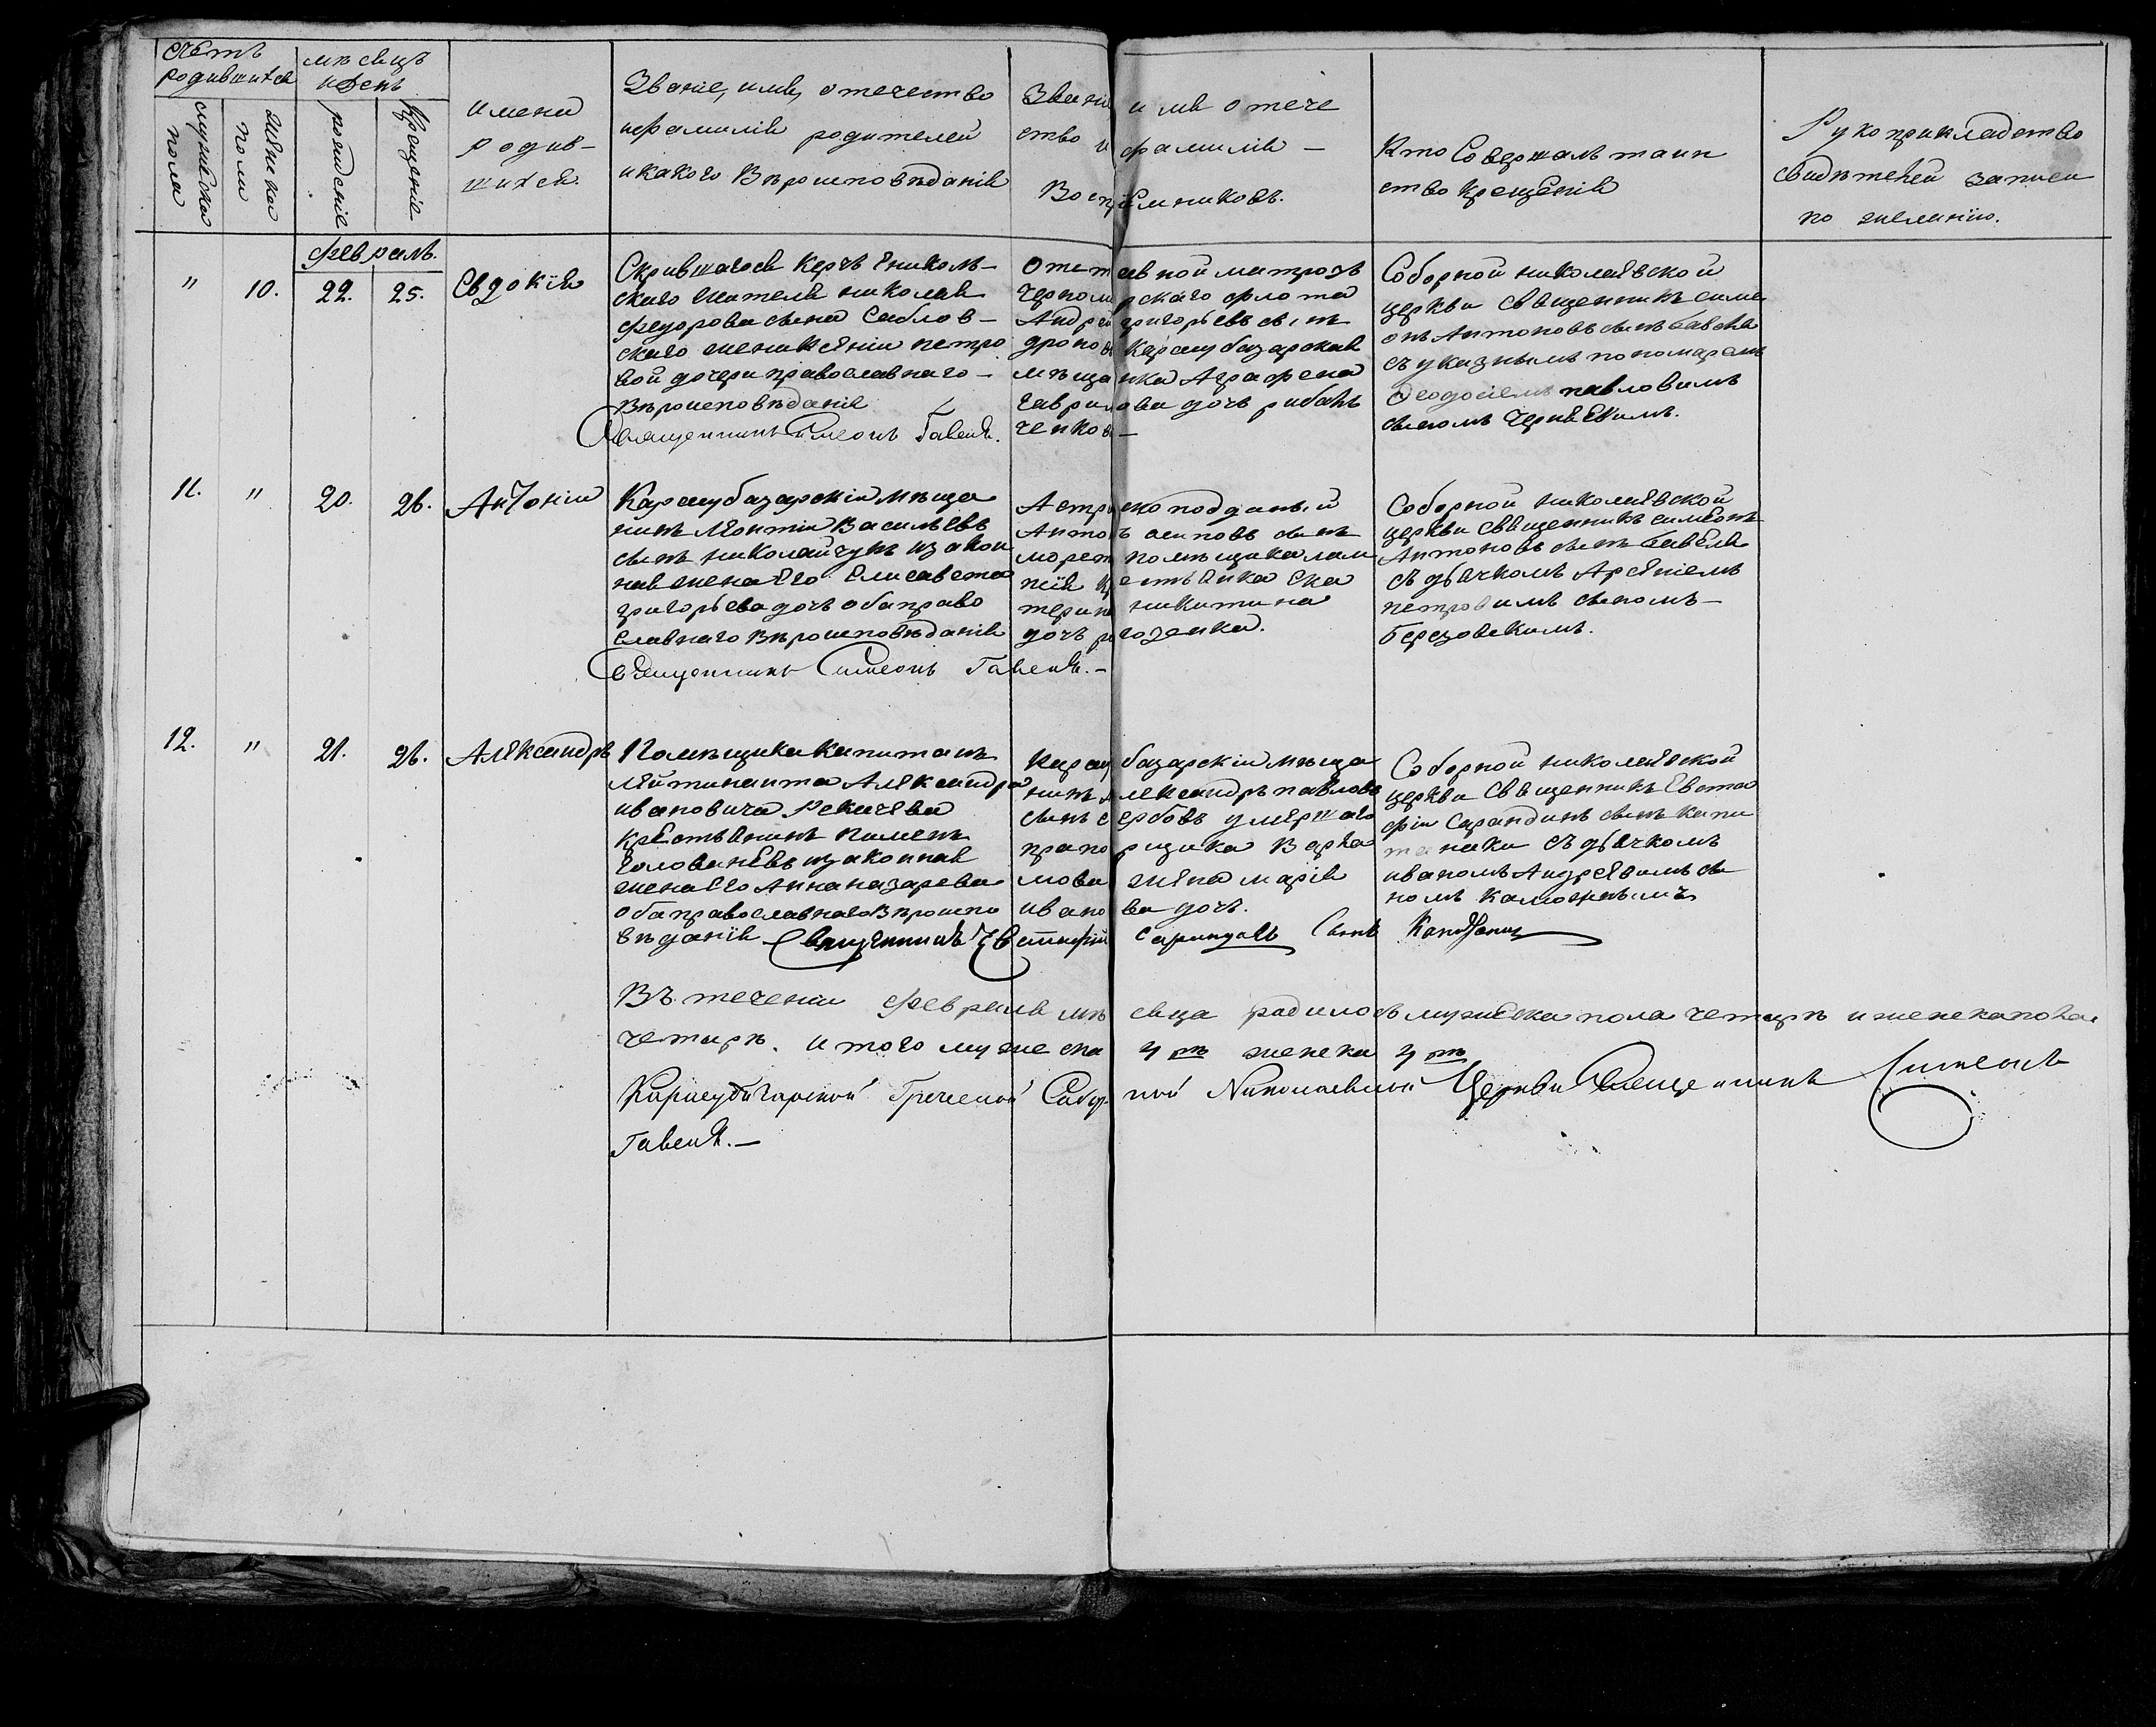 Счетъ родившихся
мѣсяцъ и день
мужеска пола
женска пола
рожденіе
крещеніе
имена
родив-
шихся.
Званіе, имя, отечество
и фамилія родителей
и какого вѣроисповѣданія
Званіе имя отече
ство и фамилія —
Воспріемниковъ.
Кто Совершалъ таин
ство крещенія
Рукоприкладство
свидѣтелей записи
по желанію.
февраль.
" 10. 22. 25. Евдокія
Скрившагося Керчь Ениколь-
скаго жителя николая
федорова сына Саблов-
скаго жени Ксеніи петро
вой дочери православнаго —
вѣроисповѣданія
Священникъ Симеонъ Гавеля.
Отставной матрозъ
Черноморскаго флота
Андрей григорьевъ сынъ
дроно Карасубазарская
мѣщанка Аграфена
гаврилова дочь рибаль
ченкова —
Соборной николаевской
церкви священникъ симе
онъ Антоновъ сынъ Гавеля
съ указнымъ пономаремъ
Феодосіемъ павловимъ
синомъ Чернявскимъ.
11. " 20. 26. Антоній
Карасубазарскій мѣща
нинъ Леонтій Васильевъ
сынъ николайчукъ изакон
ная жена Его Елисавета
григорьева дочь оба право
славнаго вѣроисповѣданія
Священникъ Симеонъ Гавеля. —
Австрійско подданый
Антонъ осиповъ сынъ
морет помѣщика лам
пія крестьянка Ека
терина никитина
дочь рогозенка.
Соборной николаевской
церкви священникъ симеонъ
Антоновъ сынъ Гавеля
съ дьячкомъ Арсеніемъ
петровимъ синомъ —
березовскимъ.
12. " 21. 26. Александръ
Помѣщика капитанъ
лейтинанта Александра
ивановича Рекачева
крестьянинъ пименъ
голованевъ изаконная
жена Его Анна назарева
оба православнаго вѣроиспо
вѣданія Священникъ Евстафій Сарандовъ Синъ
Карасубазарскій мѣща
нинъ Александръ павловъ
синъ сербовъ умершаго
прапорщика Варла
мова жена марія
иванова дочь.
Соборной николаевской
церкви священникъ Евста
фій Сарандинъ синъ капи
танаки съ дьячкомъ
иваномъ Андреевимъ си
номъ
Въ теченіи февраля мѣсяца родилось мужеска пола четырѣ и женска пола
четырѣ. итого мужеска 4рѣ женска 4рѣ
Карасубазарской Греческой Соборной Николаевской Церкви Священникъ Симеонъ
Гавеля. —